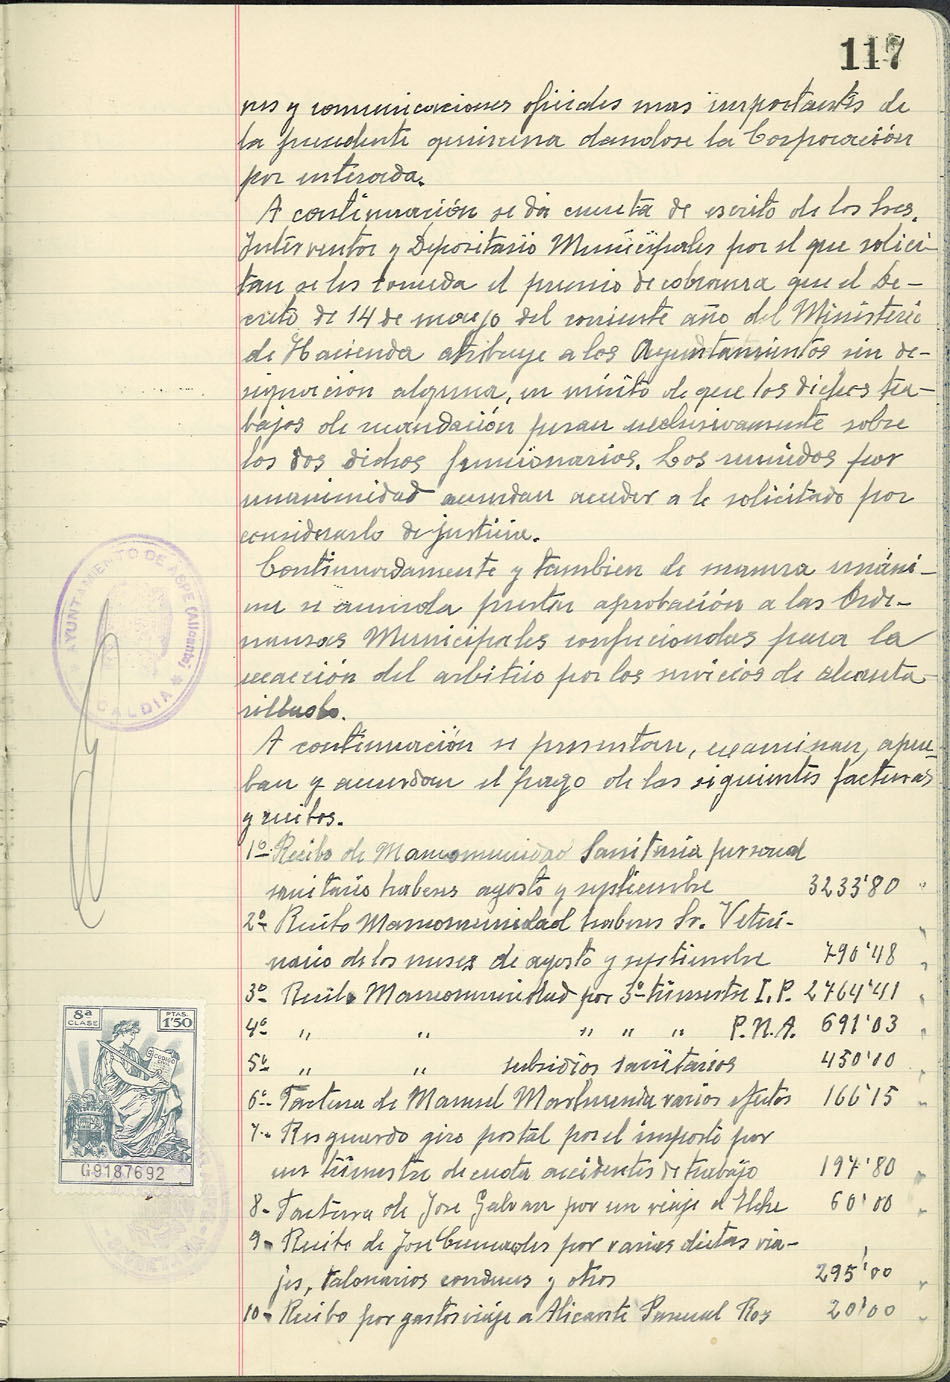 117
nes y comunicaciones oficiales mas importantes de
la precedente quincena dandose la Corporación
por enterada.
A continuación se da cuenta de escrito de los Sres.
Interventor y Depositario Municipales por el que solici-
tan se les conceda el premio de cobranza que el De-
creto de 14 de mayo del corriente año del Ministerio
de Hacienda atribuye a los Ayuntamientos sin de-
signación alguna, en mérito de que los dichos tra-
bajos de recaudación pesan exclusivamente sobre
los dos dichos funcionarios. Los reunidos por
unanimidad acuerdan acceder a lo solicitado por
considerarlo de justicia.
Continuadamente y tambien de manera unáni-
me se acuerda prestar aprobación a las Orde-
nanzas Municipales confeccionadas para la
exacción del arbitrio por los servicios de alcanta
rillado.
A continuación se presentan, examinan, aprue-
ban y acuerdan el pago de las siguientes facturas
y recibos.
1º- Recibo de Mancomunidad Sanitaria personal
sanitario haberes agosto y septiembre 3233'80 "
2º- Recibo Mancomunidad haberes Sr. Veteri-
nario de los meses de agosto y septiembre 790'48 "
3º- Recibo Mancomunidad por 3º trimestre I.P. 2764'41 "
4º- " " " " " P.N.A. 691'03 "
5º- " " subsidios sanitarios 450'00 "
6º- Factura de Manuel varios efectos 166'15 "
7- Resguardo giro postal por el importe por
un trimestre de cuota accidentes de trabajo 197'80 "
8- Factura de Jose Galvan por un viaje a Elche 60'00 "
9- Recibo de Jose por varias dietas via-
jes, talonarios conduces y otros 295'00 "
10- Recibo por gastos viaje a Alicante Pascual Roz 20'00 "
AYUNTAMIENTO DE ASPE (Alicante)
ALCALDIA
8ª CLASE
PTAS. 1'50
G9187692